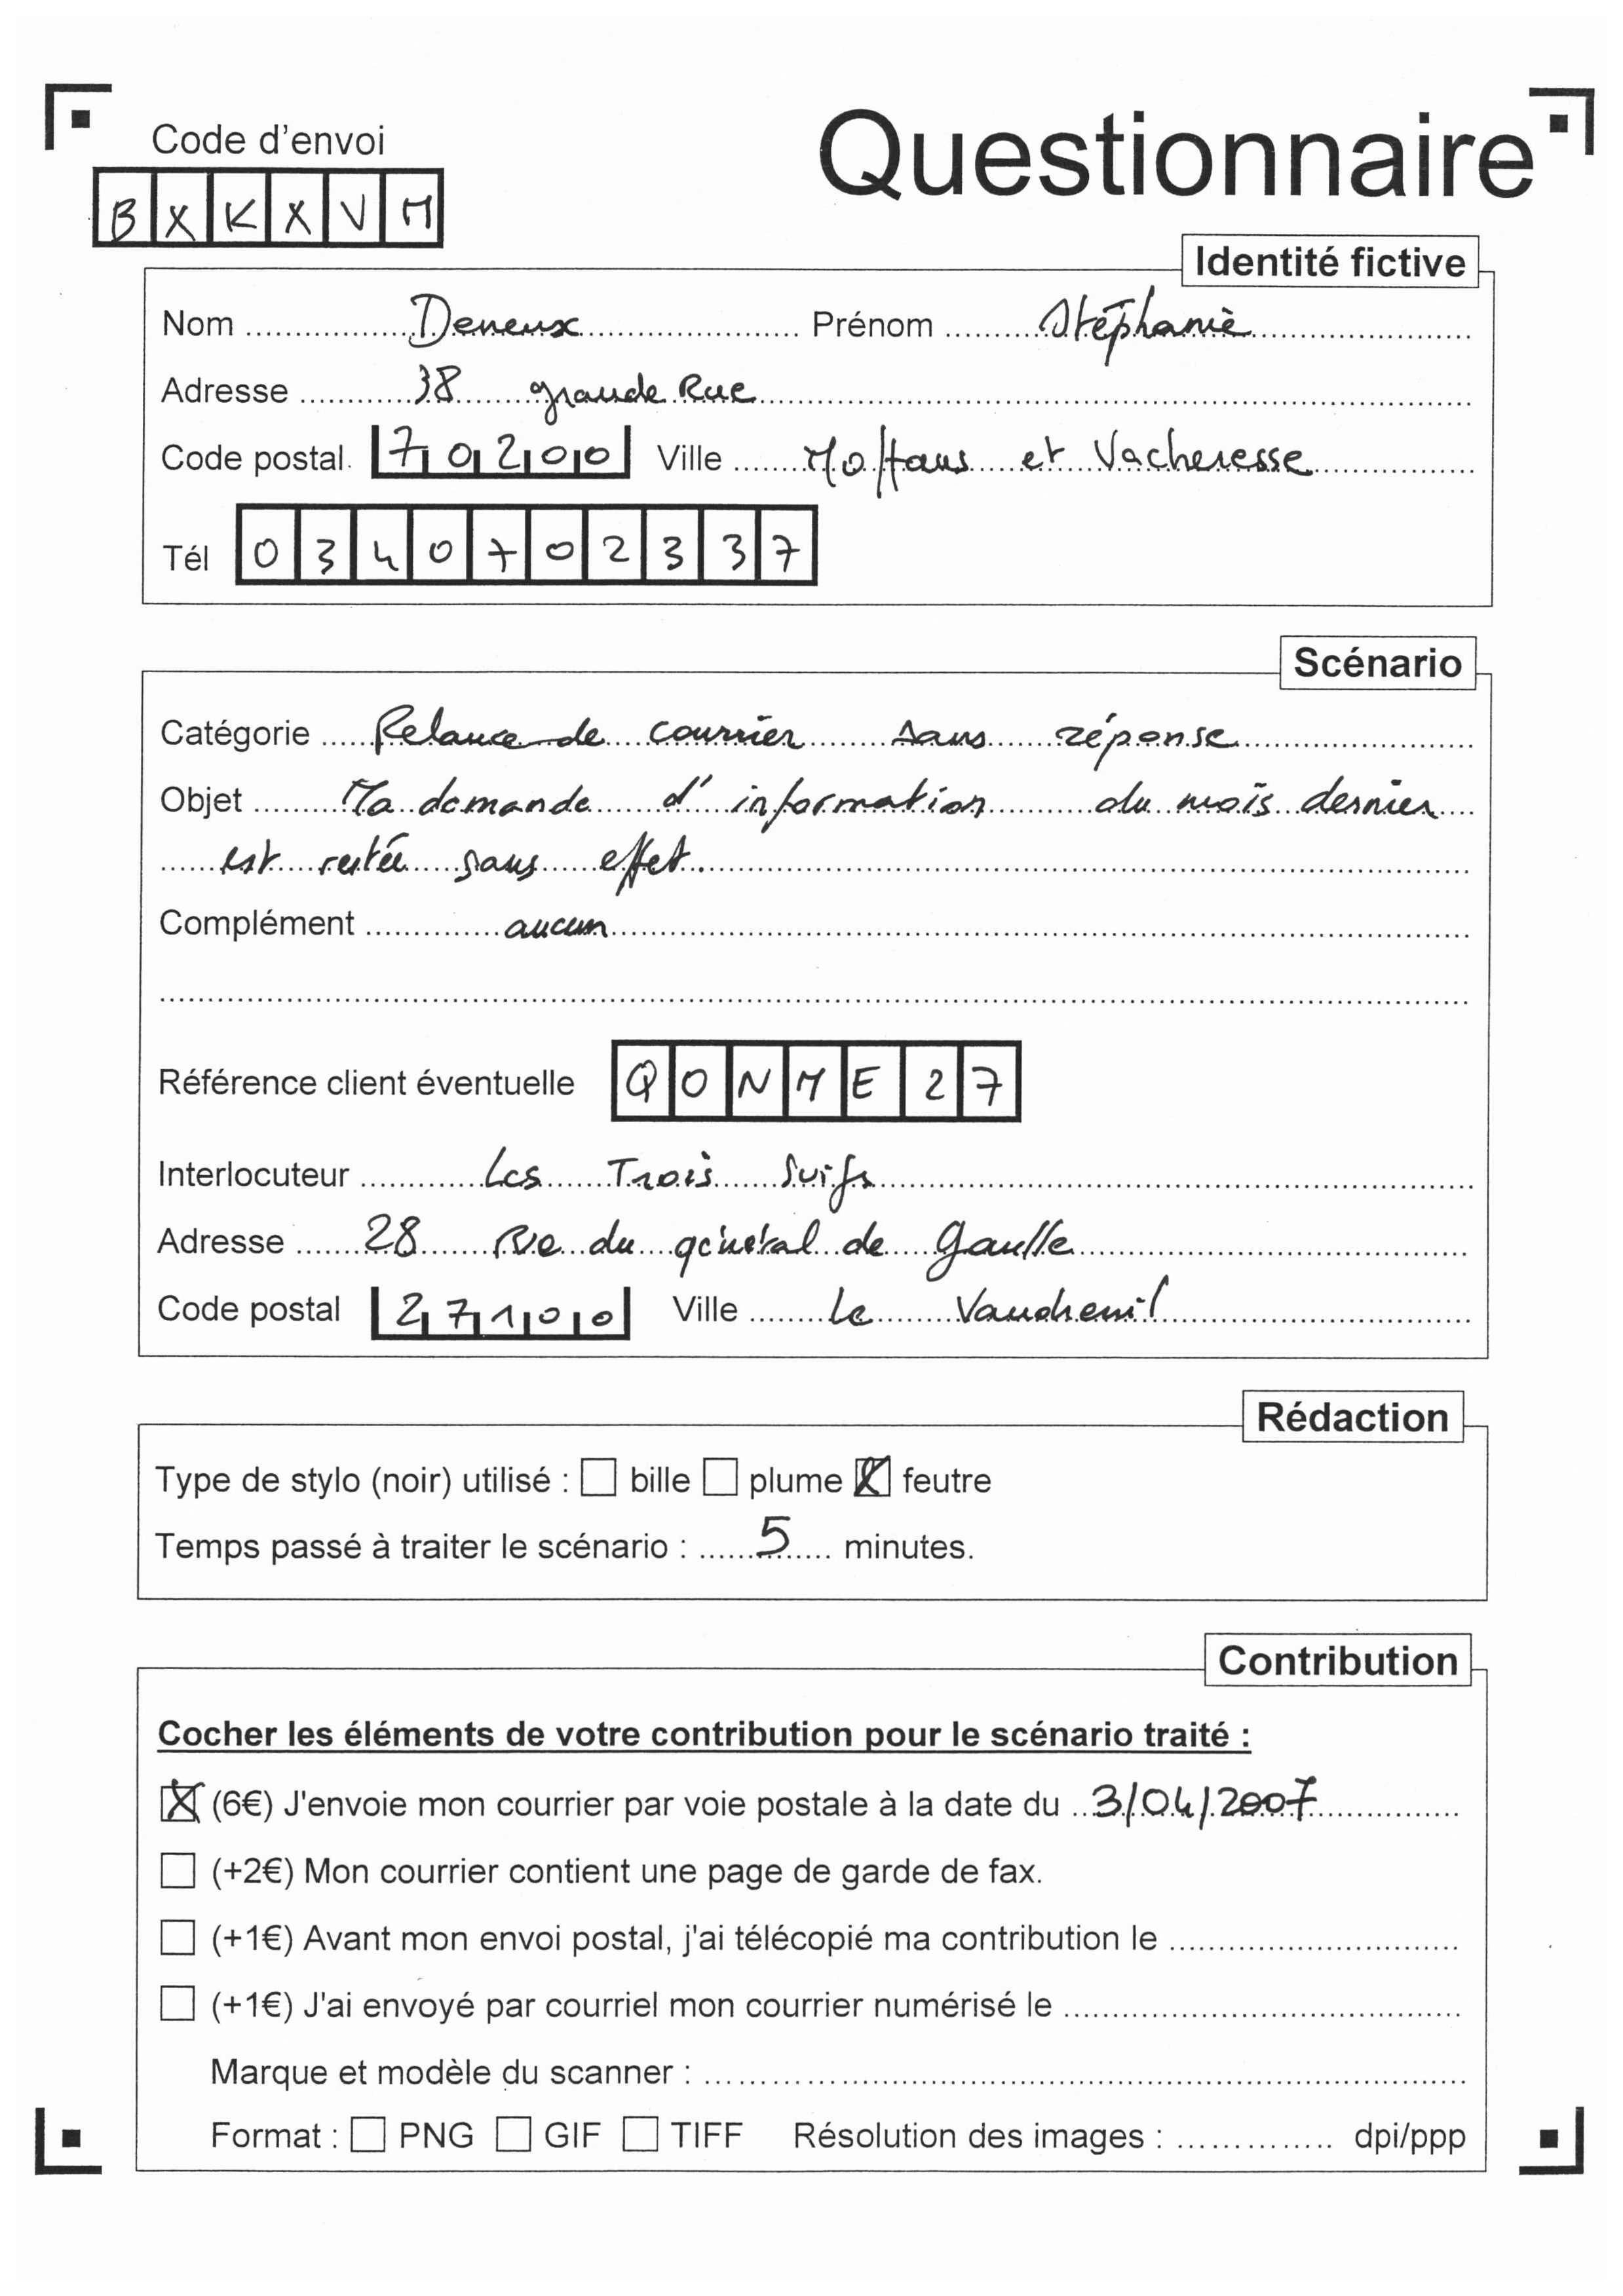 Code d'envoi
Questionnaire
BXKXVM
Identité fictive
Nom Deneux Prénom Stéphanie
Adresse 38 grande Rue
Code postal 70200 Ville Moffans et Vacheresse
Tél 0340702337
Scénario
Catégorie Relance de courrier sans réponse
Objet Ma demande d'information du mois dernier
est restée sans effet.
Complément aucun
Référence client éventuelle QONME27
Interlocuteur Les Trois Suifs
Adresse 28 Rue du général de gaulle
Code postal 27100 Ville Le Vaudreuil
Rédaction
Type de stylo (noir) utilisé : bille plume feutre
Temps passé à traiter le scénario : 5 minutes.
Contribution
Cocher les éléments de votre contribution pour le scénario traité :
(6€) J'envoie mon courrier par voie postale à la date du 3/04/2007
(+2€) Mon courrier contient une page de garde de fax.
(+1€) Avant mon envoi postal, j'ai télécopié ma contribution le
(+1€) J'ai envoyé par courriel mon courrier numérisé le
Marque et modèle du scanner :
Format : PNG GIF TIFF Résolution des images : dpi/ppp